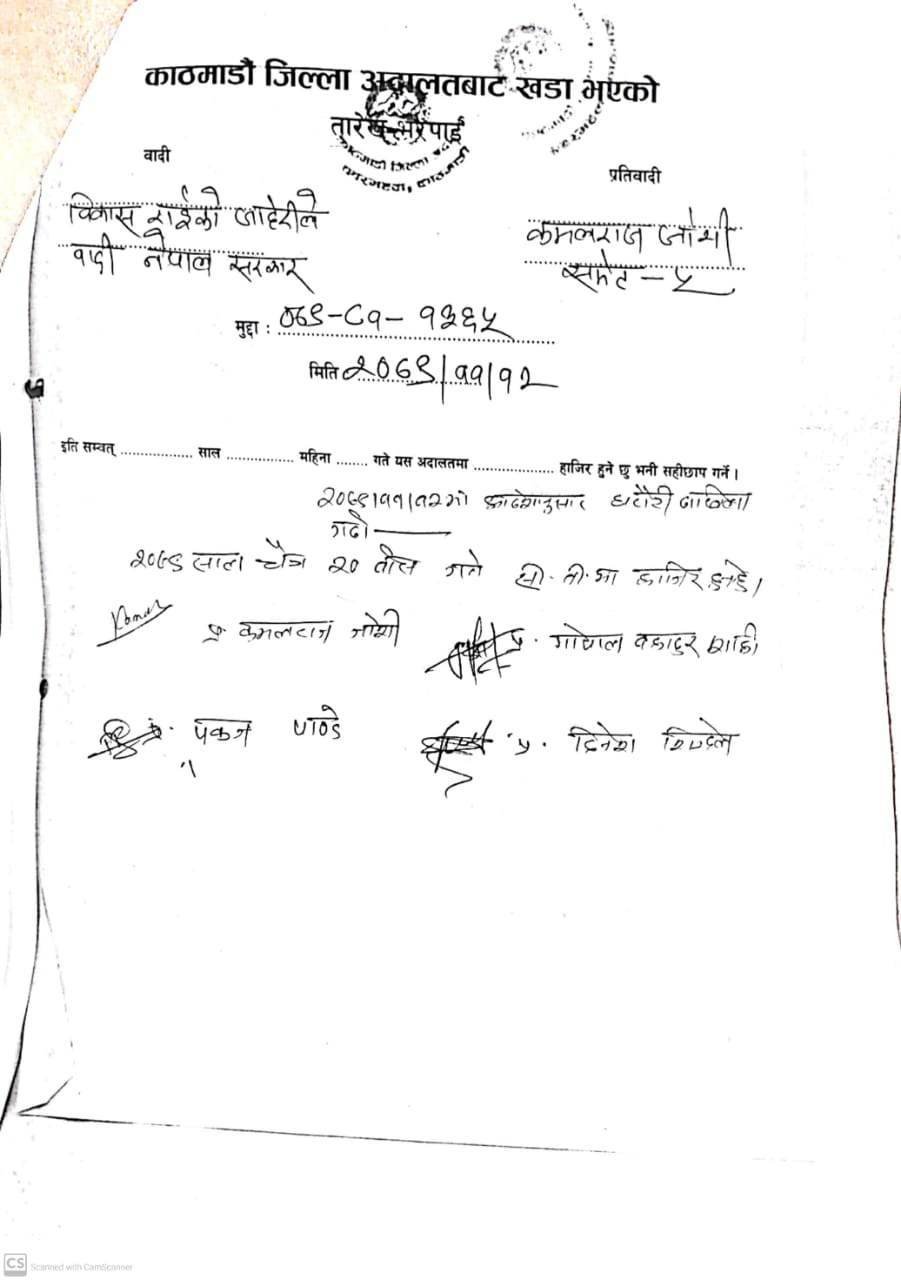 काठमाडौं जिल्ला अदालतबाट खडा भएको
तारेख भरपाई
वादी
प्रतिवादी
विकास राईको जाहेरीले
वादी नेपाल सरकार
कमलराज जोशी
समेत - ५
मुद्दा : ०६९-C१- १३६५
मिति २०६९/११/१२
इति सम्वत् .................. साल ................ महिना ........ गते यस अदालतमा ................... हाजिर हुने छु भनी सहीछाप गर्ने ।
२०६९/११/१२को आदेशानुसार धरौटी
२०६९ साल चैत्र २० बीस गते सी. ती. मा हाजिर हुनेछु।
प्र. कमलराज जोशी
प्र. गोपाल बहादुर शाही
प्र. पंकज पाण्डे
प्र. दिनेश
CS Scanned with CamScanner